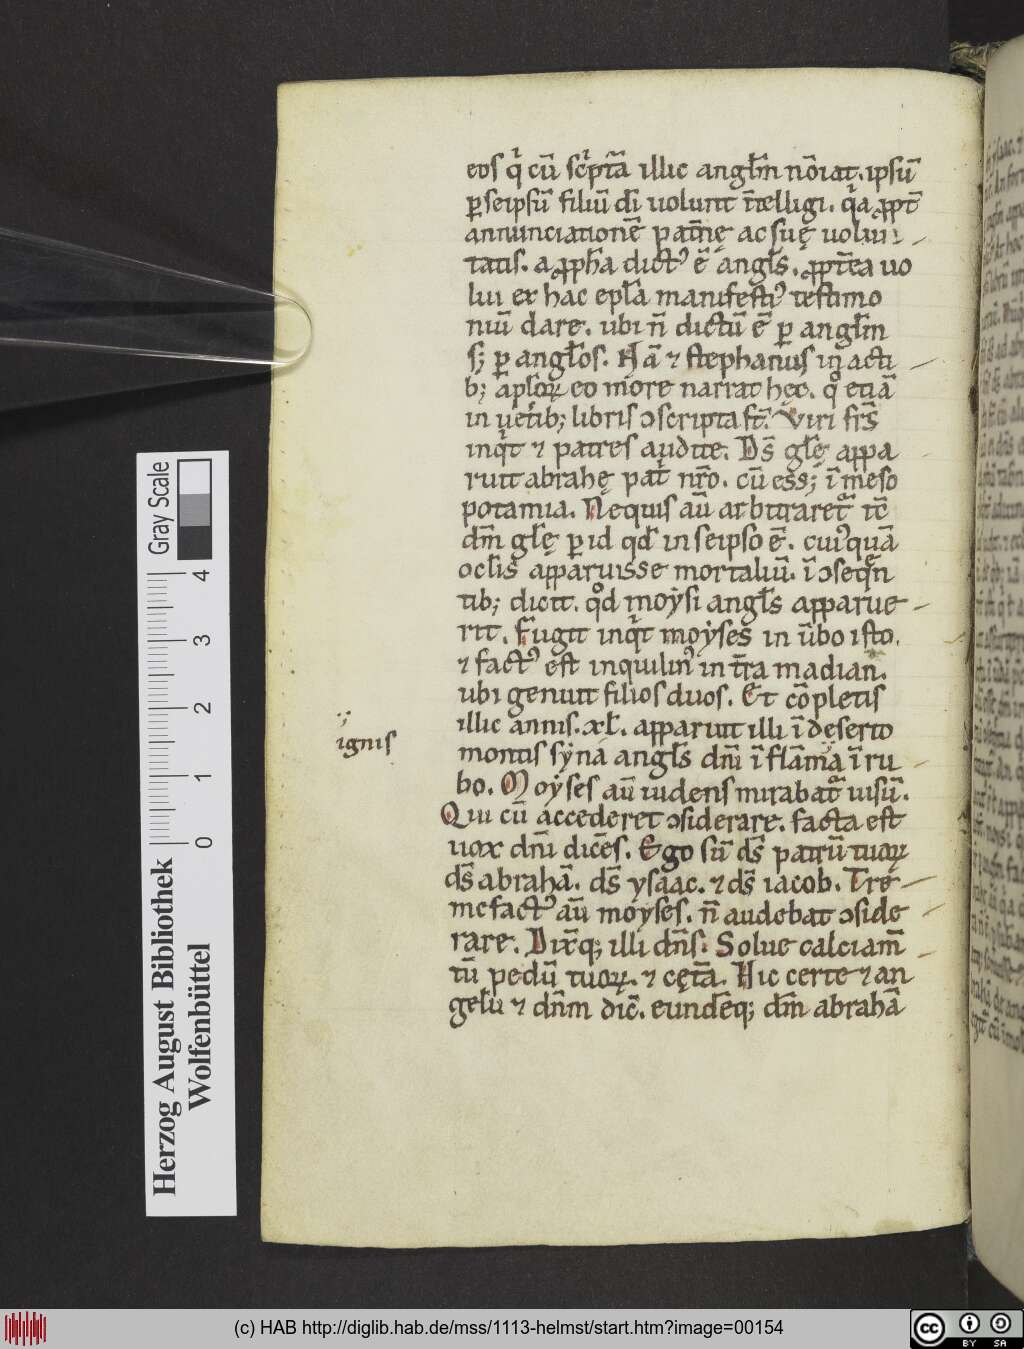 eos qͥ cū sc̄ptā illic angl̄m nōiat. ipsū
ꝑ seipsū filiū dī uolunt ītelligi. qͥa ꝓpt̄
annunciationē pat̄nę ac suę uolun
tatis. a ꝓph̄a dictꝰ ē angl̄s. ꝓpt̄ea uo
lui ex hac epl̄a manifestiꝰ testimo
niū dare. ubi n̄ dictū ē ꝑ angl̄m
s; ꝑ angl̄os. Nā ⁊ stephanus in acti
b; apl̄oꝝ eo more narrat hęc. qͦ etiā
in uet̄ib; libris ↄscripta st̄. Viri fr̄s
inqͥt ⁊ patres audite. Ds̄ gl̄ę appa
ruit abrahę pat̄ nr̄o. cū ess; ī meso
potamia. Nequis aū arbitraret̄ tc̄
dm̄ gl̄ę ꝑ id qd̄ in seipso ē. cuiꝰquā
ocl̄is apparuisse mortaliū. ī ↄseqn̄
tib; dicit. qͦd moẏsi angl̄s apparue
rit. Fugit inqͥt moẏses in ūbo isto.
⁊ factꝰ est inquilinꝰ in t̄ra madian.
ubi genuit filios duos. Et cōpletis
illic annis. xl. apparuit illi ī deserto
ignis
montis sẏna angl̄s dn̄i ī flāma ī ru
bo. Moẏses aū uidens mirabat̄ uisū.
Qui cū accederet ↄsiderare. facta est
uox dn̄i dicēs. Ego sū ds̄ patrū tuoꝝ
ds̄ abrahā. ds̄ ysaac. ⁊ ds̄ iacob. Tre
mefactꝰ aū moyses. n̄ audebat ↄside
rare. Dixq; illi dn̄s. Solue calciam̄
tū pedū tuoꝝ. ⁊ cęt̄a. Hic certe ⁊ an
gelū ⁊ dn̄m dic̄. eundēq; dm̄ abrahā
Gray Scale
0 1 2 3 4
Herzog August Bibliothek
Wolfenbüttel
(c) HAB http://diglib.hab.de/mss/1113-helmst/start.htm?image=00154
cc BY SA